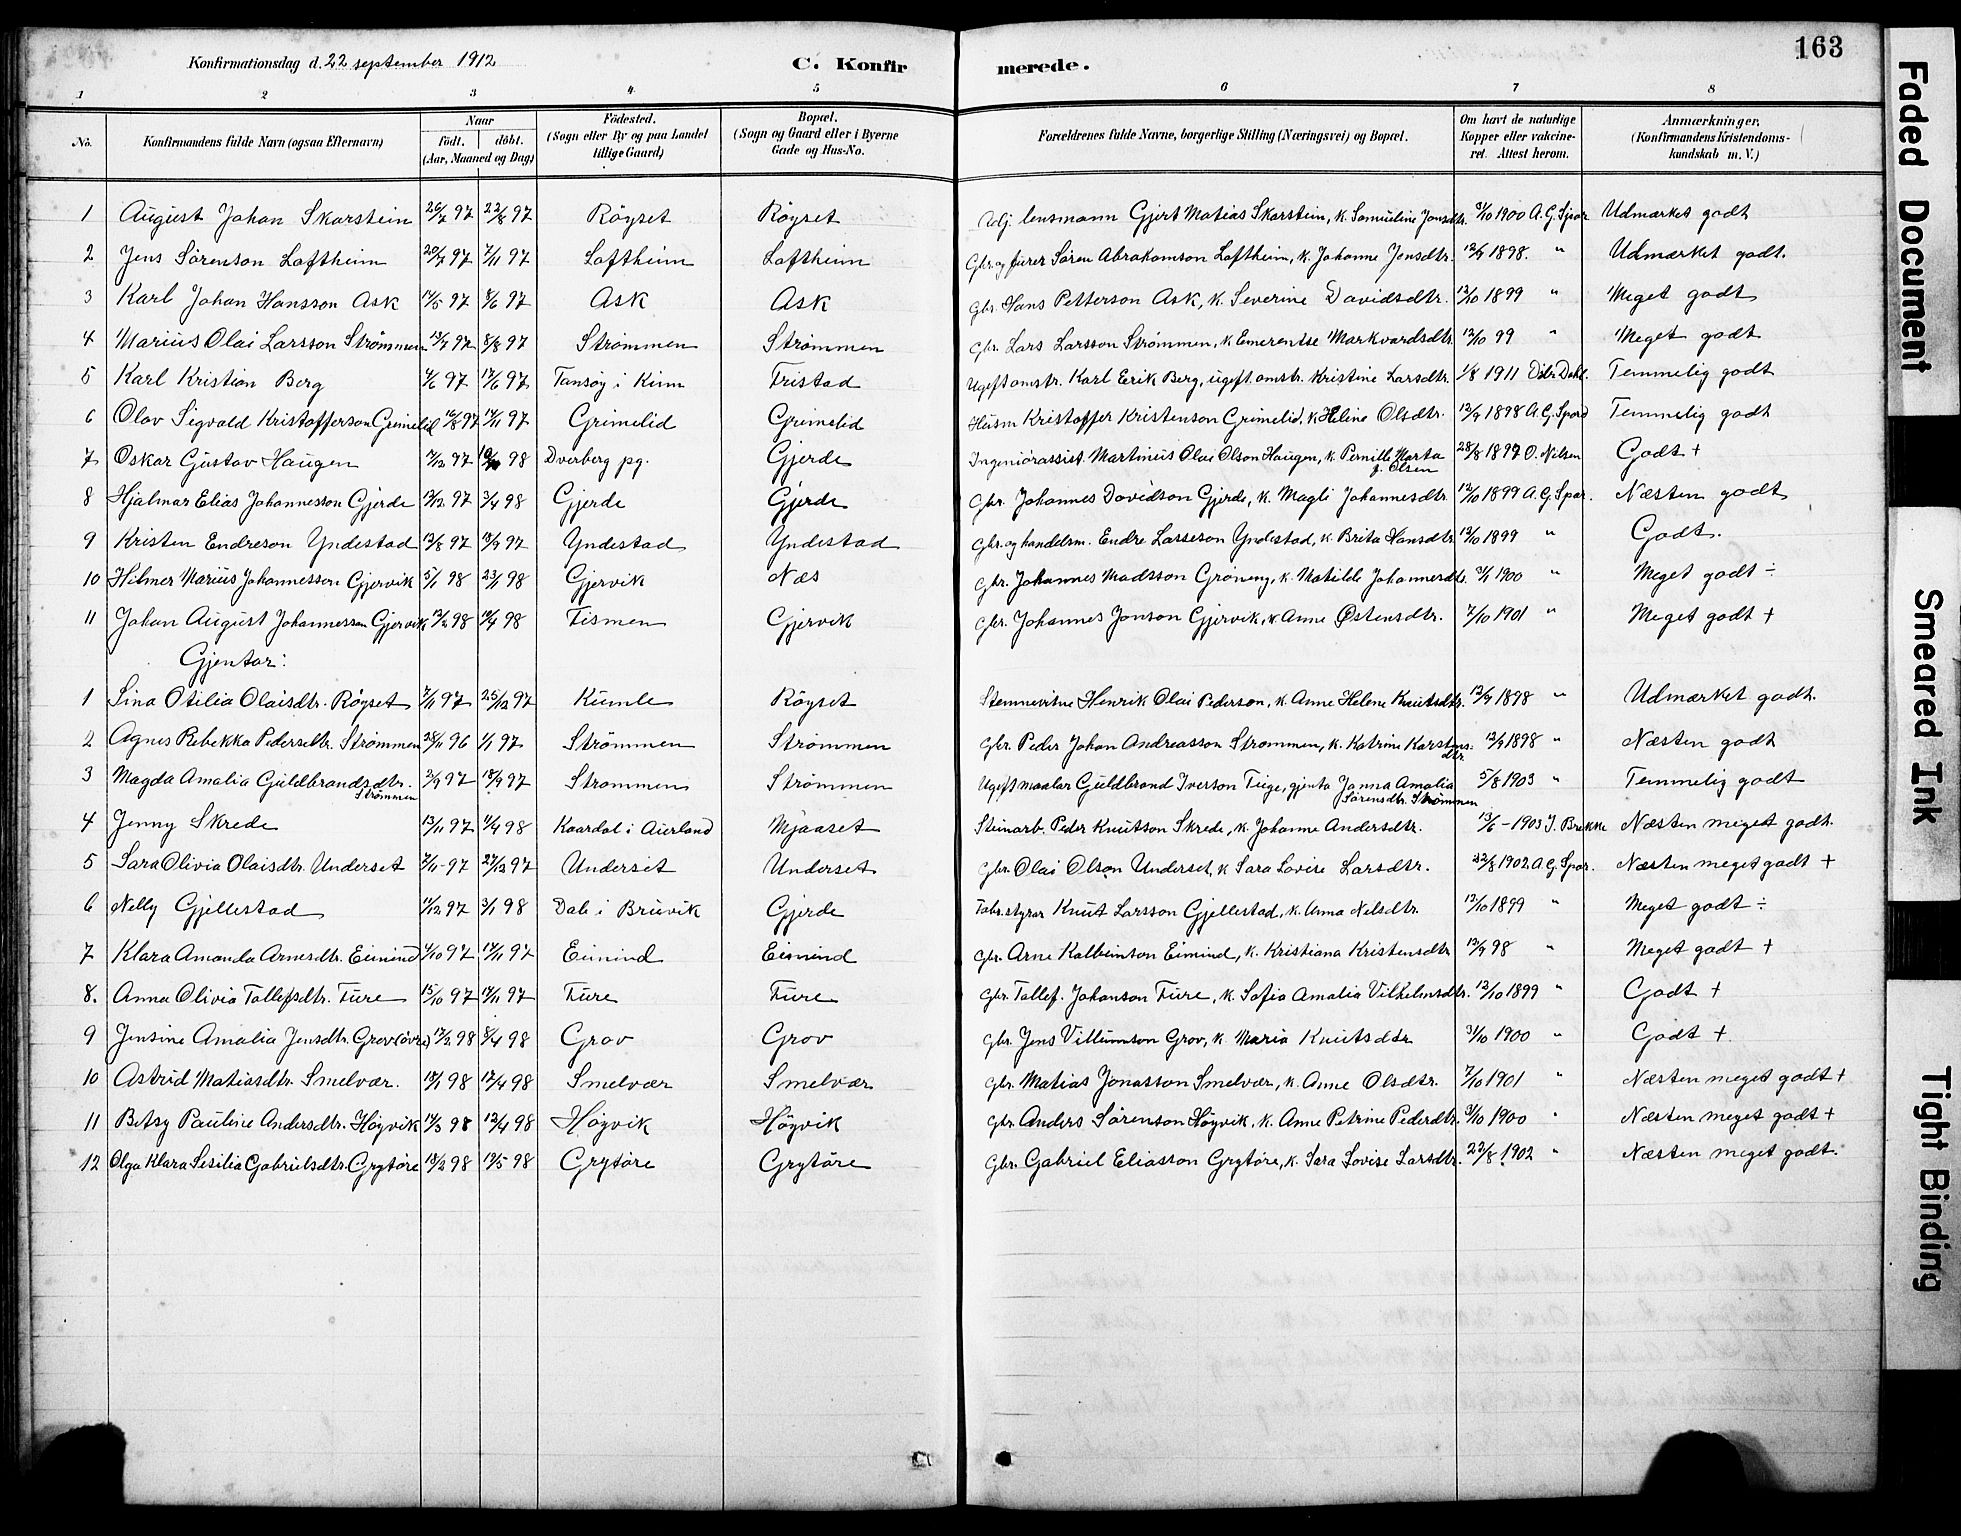 Konfirmationsdag d. 22 september 1912 C. Konfirmerede. 163
1 2 3 4 5 6 7 8
No. Konfirmandens fulde Navn (ogsaa Efternavn) Naar födt. döbt. (Aar, Maaned og Dag) Födested. (Sogn eller By og paa Landet tillige Gaard) Bopæl. (Sogn og Gaard eller i Byerne Gade og Hus-No. Forældrenes fulde Navne, borgerlige Stilling (Næringsvei) og Bopæl. Om havt de naturlige Kopper eller vakcineret. Attest herom. Anmærkninger. (Konfirmandens Kristendomskundskab m. V.)
1 August Johan Skarstein 97 22/8 97 Röyset Röyset Adj. lensmann Gjert Matias Skarstein, k. Samueline Jensdtr. 1900 A. G. Spor Udmærket godt
2 Jens Sörenson Loftheim 97 7/11 97 Loftheim Loftheim Gbr. og furer Sören Abrahamson Loftheim, k. Johanne Jensdtr. 12/9 1898. " Udmærket godt.
3 Karl Johan Hansson Ask 97 97 Ask Ask Gbr. Hans Petterson Ask, k. Severine Davidsdtr. 12/10 1899 " Meget godt
4 Marius Olai Larsson Strömmen 97 8/8 97 Strömmen Strömmen Gbr. Lars Larsson Strömmen, k. Emerentse Markvardsdtr. 12/10 99 " Meget godt
5 Karl Kristian Berg 97 97 Tansöy i Kinn Fristad Ugeft omstr. Karl Eerik Berg, ugeft. omstr. Kristine Larsdtr. 1/8 1911 Dahl. Temmelig godt
6 Olav Sigvald Kristofferson Grimelid 97 97 Grimelid Grimelid Husm Kristoffer Kristenson Grimelid, k. Heline Olsdtr. 12/9 1898 A. G. Spord Temmelig godt
7 Oskar Gustav Haugen 97 98 Dverberg pg. Gjerde Ingeniörassist. Martinus Olai Olson Haugen, k. Pernille Marta f. Olsen 28/8 1897 O. Nilsen Godt +
8 Hjalmar Elias Johannesson Gjerde 97 3/4 98 Gjerde Gjerde Gbr. Johannes Davidson Gjerde, k. Magli Johannesdtr. 12/10 1899 A. G. Spor. Næsten godt
9 Kristen Endreson Yndestad 97 97 Yndestad Yndestad Gbr. og handelsm. Endre Lasseson Yndestad, k. Brita Hansdtr 12/10 1899 " Godt.
10 Hilmer Marius Johannesson Gjervik 5/1 98 23/1 98 Gjervik Næs Gbr. Johannes Madsson Gröneng, k. Matilde Johannesdtr. 1900 " Meget godt ÷
11 Johan August Johannesson Gjervik 98 98 Fismen Gjervik Gbr. Johannes Jonson Gjervik, k. Anne Östensdtr. 7/10 1901 " Meget godt +
Gjentor:
1 Sina Otilia Olaisdtr. Röyset 7/11 97 25/12 97 Kumle Röyset Stemnevitne Henrik Olai Pederson, k. Anne Helene Knutsdtr. 12/9 1898 " Udmærket godt.
2 Agnes Rebekka Pedersdtr. Strömmen 28/11 96 1/1 97 Strömmen Strömmen Gbr. Peder Johan Andreasson Strömmen, k. Katrine Karstensdtr. 12/9 1898 " Næsten godt
3 Magda Amalia Guldbrandsdtr. Strömmen 2/9 97 18/9 97 Strömmen Strömmen Ugift maalar Guldbrand Iverson Tuge, gjenta Janna Amalia Sörensdtr. Strömmen 5/8 1903 " Temmelig godt
4 Jenny Skrede 13/11 97 98 Kaardal i Aurland Mjaaset Steinarb. Peder Knutson Skrede, k. Johanne Andersdtr. 13/6 - 1903 J. Brekke Næsten meget godt.
5 Sara Olivia Olaisdtr. Underset 7/11 - 97 27/12 97 Underset Underset Gbr. Olai Olson Underset, k Sara Lovise Larsdtr. 22/8 1902. A. G. Spor. Næsten meget godt +
6 Nelly Gjellestad 97 3/1 98 Dale i Bruvik Gjerde Fabr. styrar Knut Larsson Gjellestad, k. Anna Nilsdtr. 12/10 1899 " Meget godt ÷
7 Klara Amanda Arnesdtr. Eimind 97 97 Eimind Eimind Gbr. Arne Kolbeinson Eimind, k. Kristiana Kristensdtr 12/9 98 " Meget godt +
8. Anna Olivia Tollefsdtr. Fure 15/10 97 97 Fure Fure Gbr. Tollef. Johanson Fure, k. Sofia Amalia Vilhelmsdtr. 12/10 1899 " Godt +
9 Jensine Amalia Jensdtr. Grov (övre) 98 8/4 98 Grov Grov Gbr. Jens Villumson Grov, k. Maria Knutsdtr 1900 " Godt +
10 Astrid Matiasdtr. Smelvær. 98 98 Smelvær Smelvær Gbr. Matias Jonasson Smelvær, k. Anne Olsdtr. 7/10 1901 " Næsten meget godt +
11 Betsy Pauline Andersdtr. Högvik 98 98 Högvik Högvik Gbr. Anders Sörenson Högvik, k. Anne Petrine Pedersdtr. 1900 " Næsten meget godt +
12 Olga Klara Sesilia Gabrielsdtr. Grytöre 98 98 Grytöre Grytöre Gbr. Gabriel Eliasson Grytöre, k. Sara Lovise Larsdtr. 22/8 1902 " Næsten meget godt.
Faded Document
Smeared Ink
Tight Binding